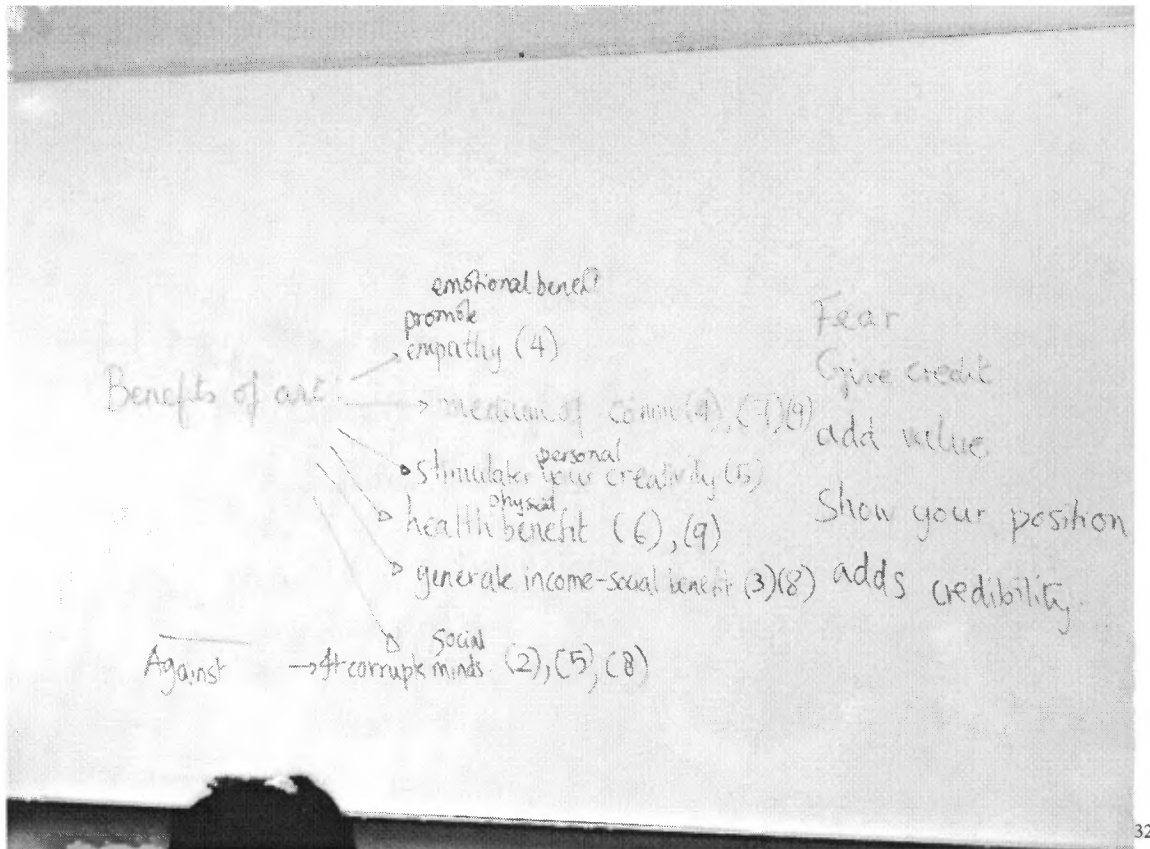 emotional benefit
promote
empathy (4)
Benefits of art:
medium of comm (4), (7) (9)
personal
stimulates your creativity (5)
physical
health benefit (6), (9)
generate income - social benefit (3) (8)
social
Against → It corrupts minds. (2), (5), (8)
Fear
Give credit
add value
Show your position
adds credibility.
32